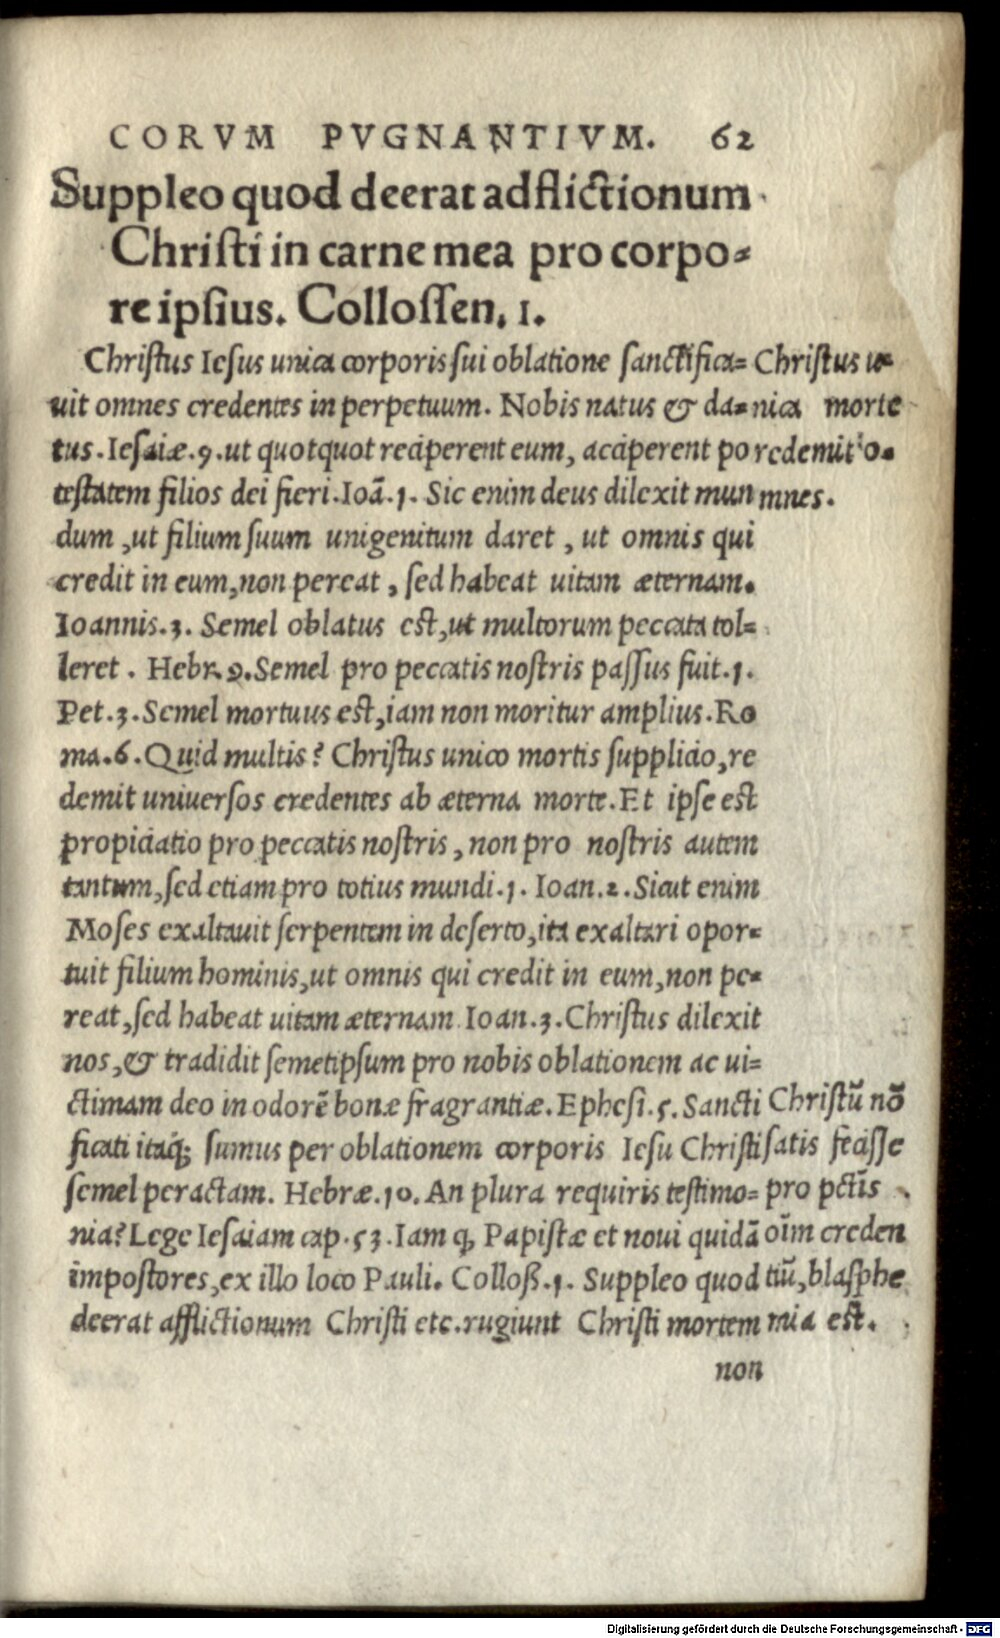 CORVM PVGNANTIVM. 62
Suppleo quod deerat adflictionum
Christi in carne mea pro corpo=
re ipsius. Collossen. 1.
Christus Iesus unica corporis sui oblatione sanctifica=
uit omnes credentes in perpetuum. Nobis natus & da=
tus. Iesaiæ. 9. ut quotquot reciperent eum, acciperent po
testatem filios dei fieri. Ioã. 1. Sic enim deus dilexit mun
dum, ut filium suum unigenitum daret, ut omnis qui
credit in eum, non pereat, sed habeat uitam æternam.
Ioannis. 3. Semel oblatus est, ut multorum peccata tol=
leret. Hebr. 9. Semel pro peccatis nostris passus fuit. 1.
Pet. 3. Semel mortuus est, iam non moritur amplius. Ro
ma. 6. Quid multis? Christus unico mortis supplicio, re
demit universos credentes ab æterna morte. Et ipse est
propiciatio pro peccatis nostris, non pro nostris autem
tantum, sed etiam pro totius mundi. 1. Ioan. 2. Sicut enim
Moses exaltauit serpentem in deserto, ita exaltari opor=
tuit filium hominis, ut omnis qui credit in eum, non pe=
reat, sed habeat uitam æternam. Ioan. 3. Christus dilexit
nos, & tradidit semetipsum pro nobis oblationem ac ui=
ctimam deo in odorẽ bonæ fragrantiæ. Ephesi. 5. Sancti
ficati itaq; sumus per oblationem corporis Iesu Christi
semel peractam. Hebræ. 10. An plura requiris testimo=
nia? Lege Iesaiam cap. 53. Iam q; Papistæ et noui quidã
impostores, ex illo loco Pauli. Colloß. 1. Suppleo quod
deerat afflictionum Christi etc. rugiunt Christi mortem
non
Christus u=
nica morte
redemit o=
mnes.
Christũ nõ
satis fecisse
pro pctĩs
oĩm creden
tiũ, blasphe
mia est.
Digitalisierung gefördert durch die Deutsche Forschungsgemeinschaft - DFG